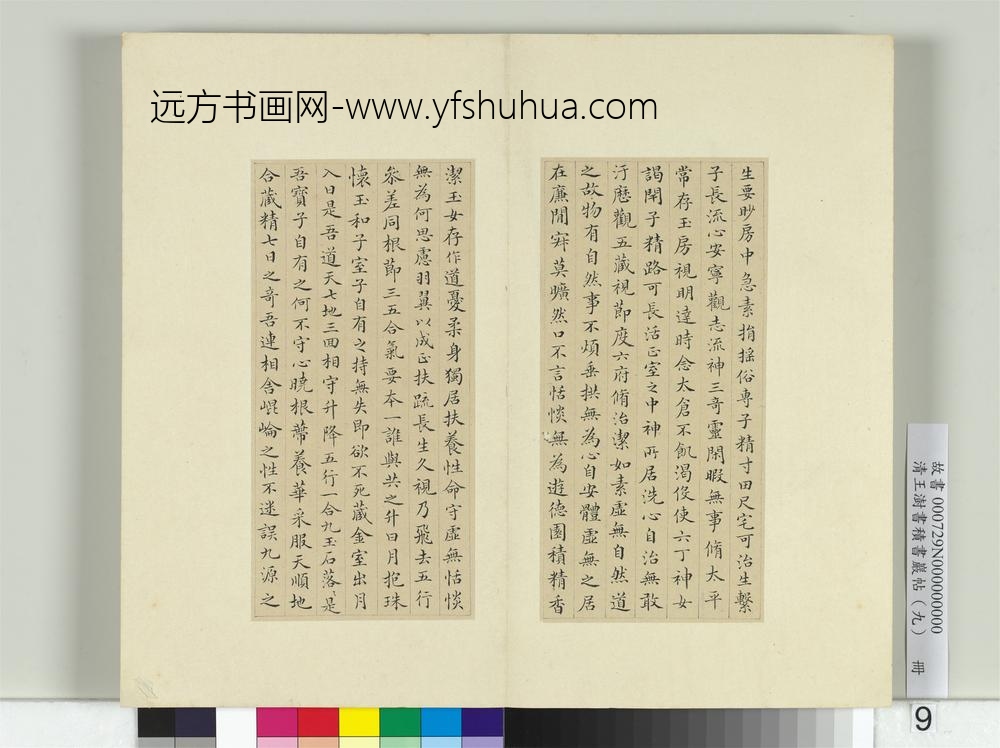 远方书画网-www.yfshuhua.com
生要眇房中急素捎搖俗專子精寸田尺宅可治生繫
子長流心安寧觀志流神三奇靈閑暇無事脩太平
常存玉房視明達時念太倉不飢渴役使六丁神女
謁閉子精路可長活正室之中神所居洗心自治無敢
汙歷觀五藏視節度六府脩治潔如素虛無自然道
之故物有自然事不煩垂拱無為心自安體虛無之居
在廉間寂莫曠然口不言恬惔無為遊德園積精香
潔玉女存作道憂柔身獨居扶養性命守虛無恬惔
無為何思慮羽翼以成正扶疏長生久視乃飛去五行
參差同根節三五合氣要本一誰與共之升日月抱珠
懷玉和子室子自有之持無失即欲不死藏金室出月
入日是吾道天七地三回相守升降五行一合九玉石落落是
吾寶子自有之何不守心曉根蒂養華采服天順地
合藏精七日之奇吾連相舍崐崘之性不迷誤九源之
故書 000729N000000000
清王澍書積書巖帖（九） 冊
9